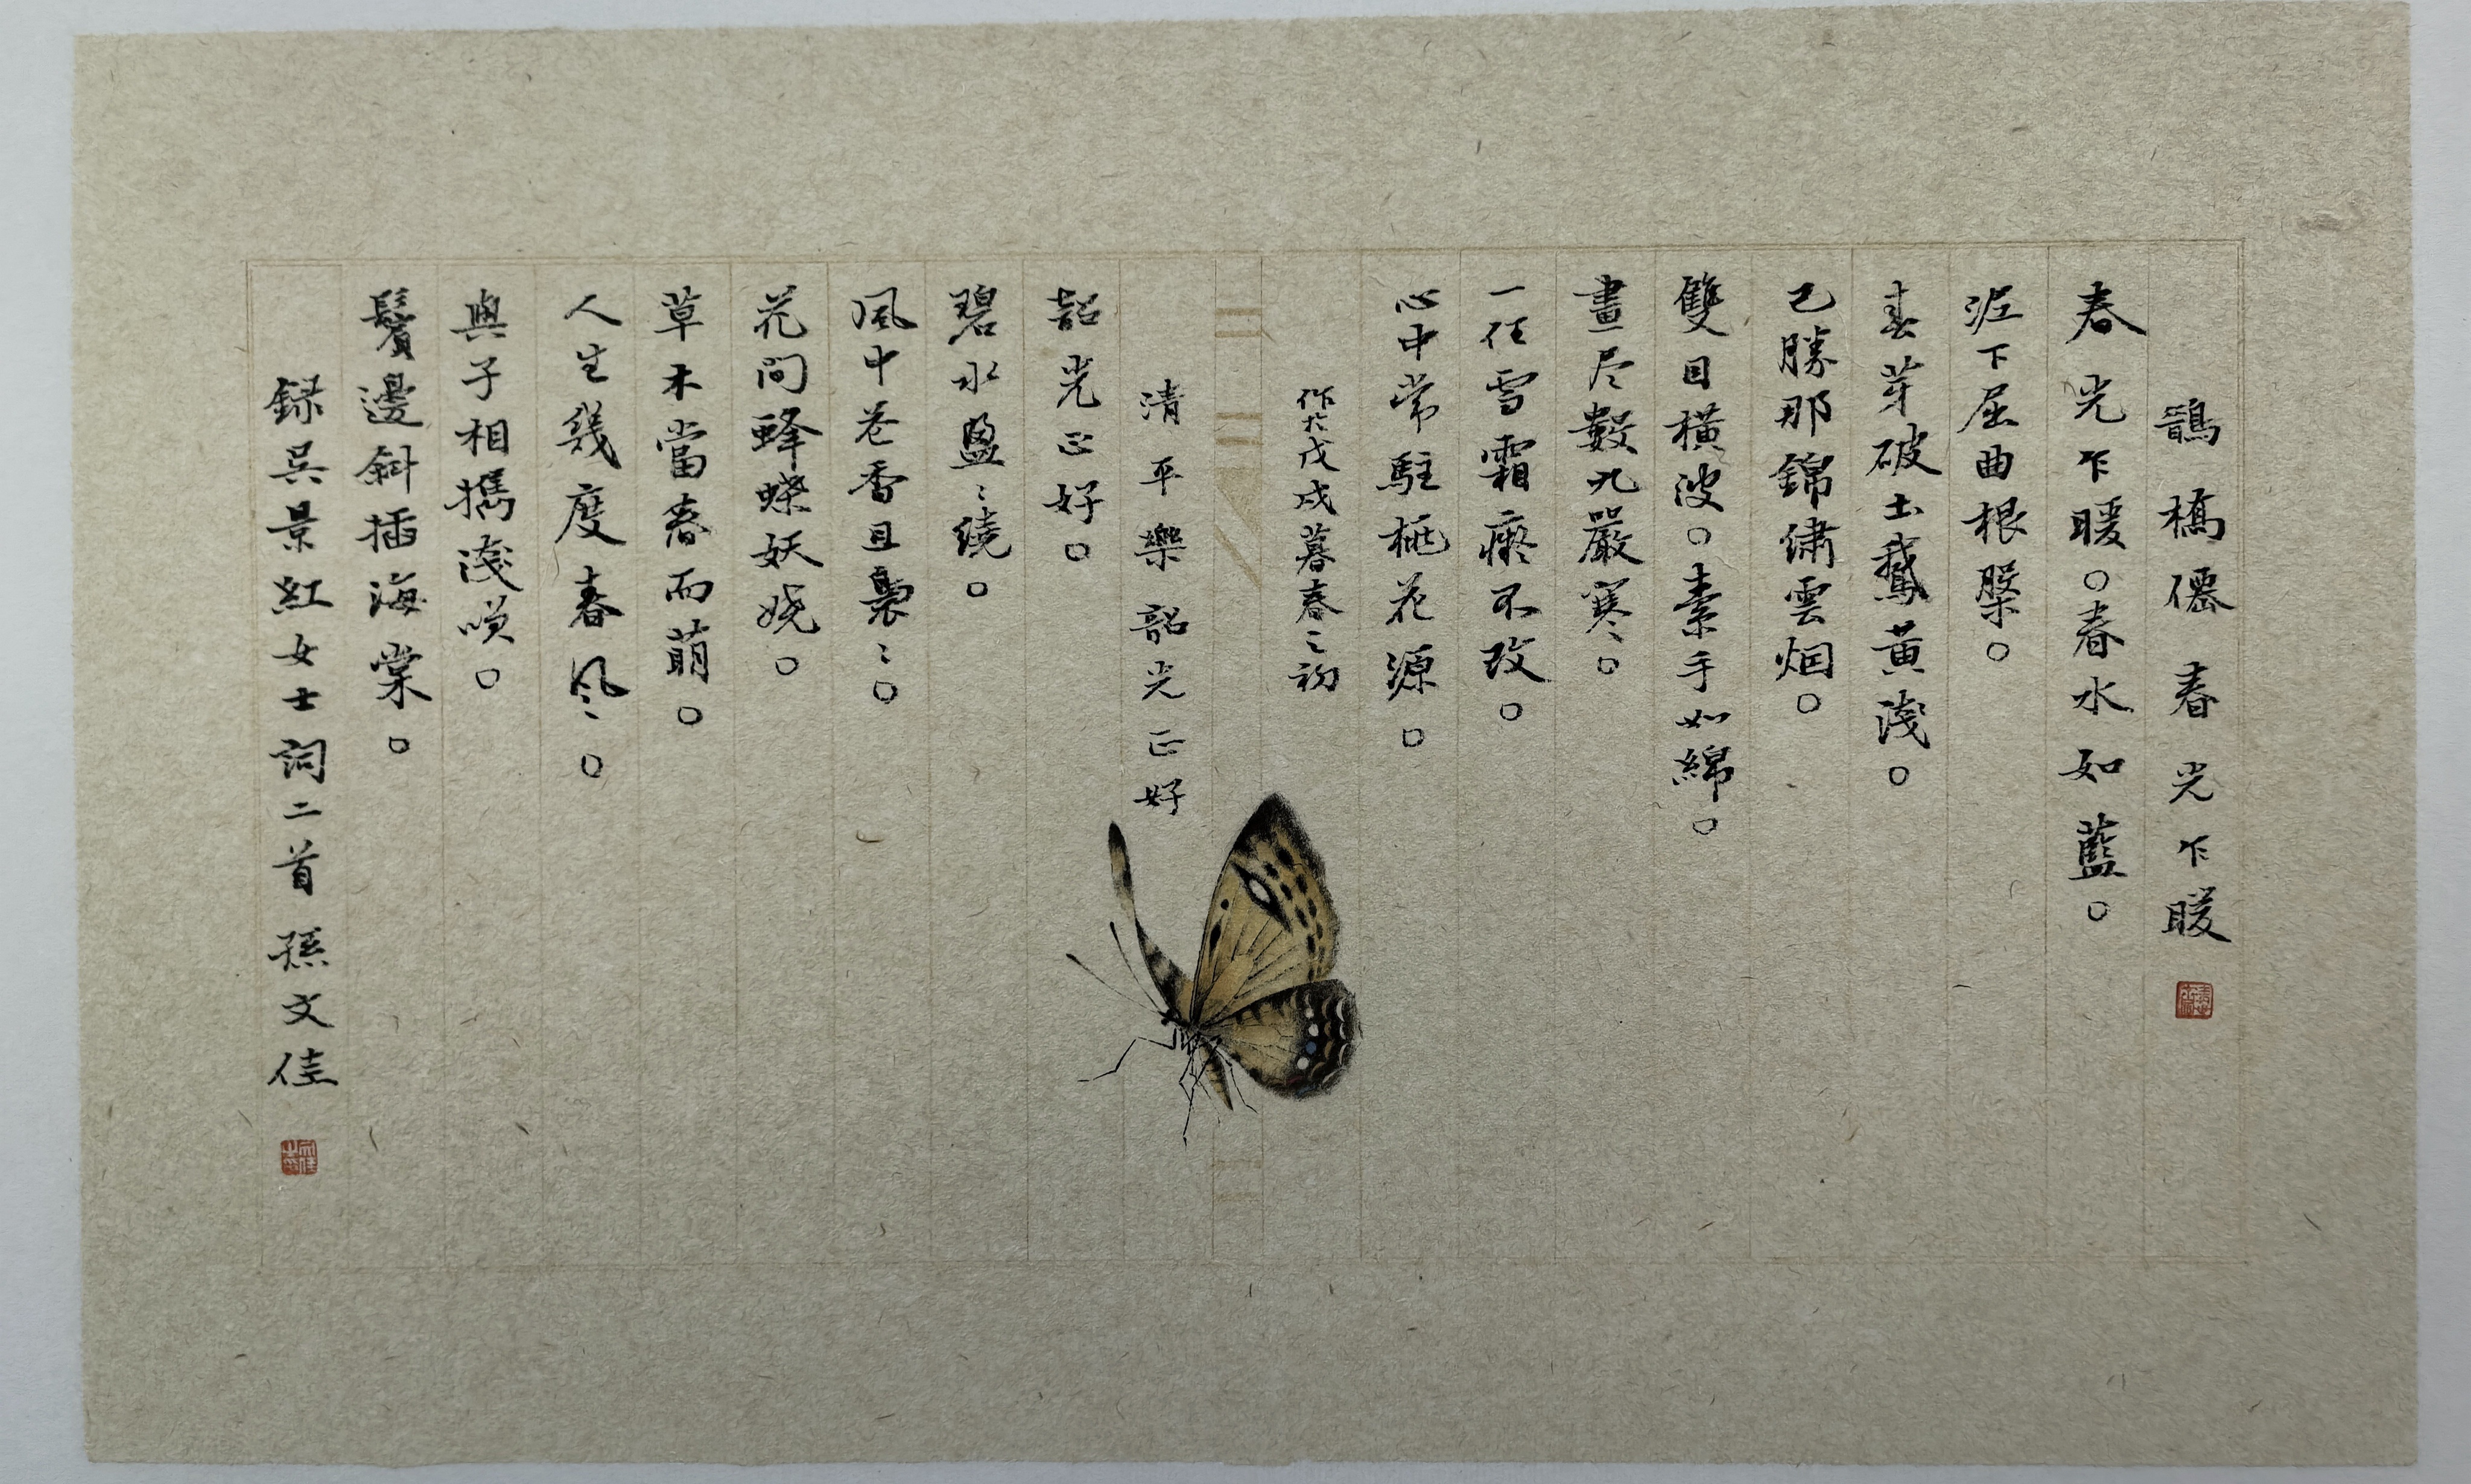 鵲橋僊 春光乍暖
春光乍暖。春水如藍。
泥下屈曲根槃。
春芽破土鵞黄淺。
已勝那錦繡雲烟。
雙目橫波。素手如綿。
畫尽數九嚴寒。
一任雪霜瘷不改。
心中常駐桃花源。
作於戊戌暮春之初
清平樂 韶光正好
韶光正好。
碧水盈〻繞。
風中花香且裊〻。
花间蜂蝶妖娆。
草木當春而萌。
人生幾度春風。
與子相攜淺咲。
鬢邊斜插海棠。
録吳景紅女士詞二首 孫文佳